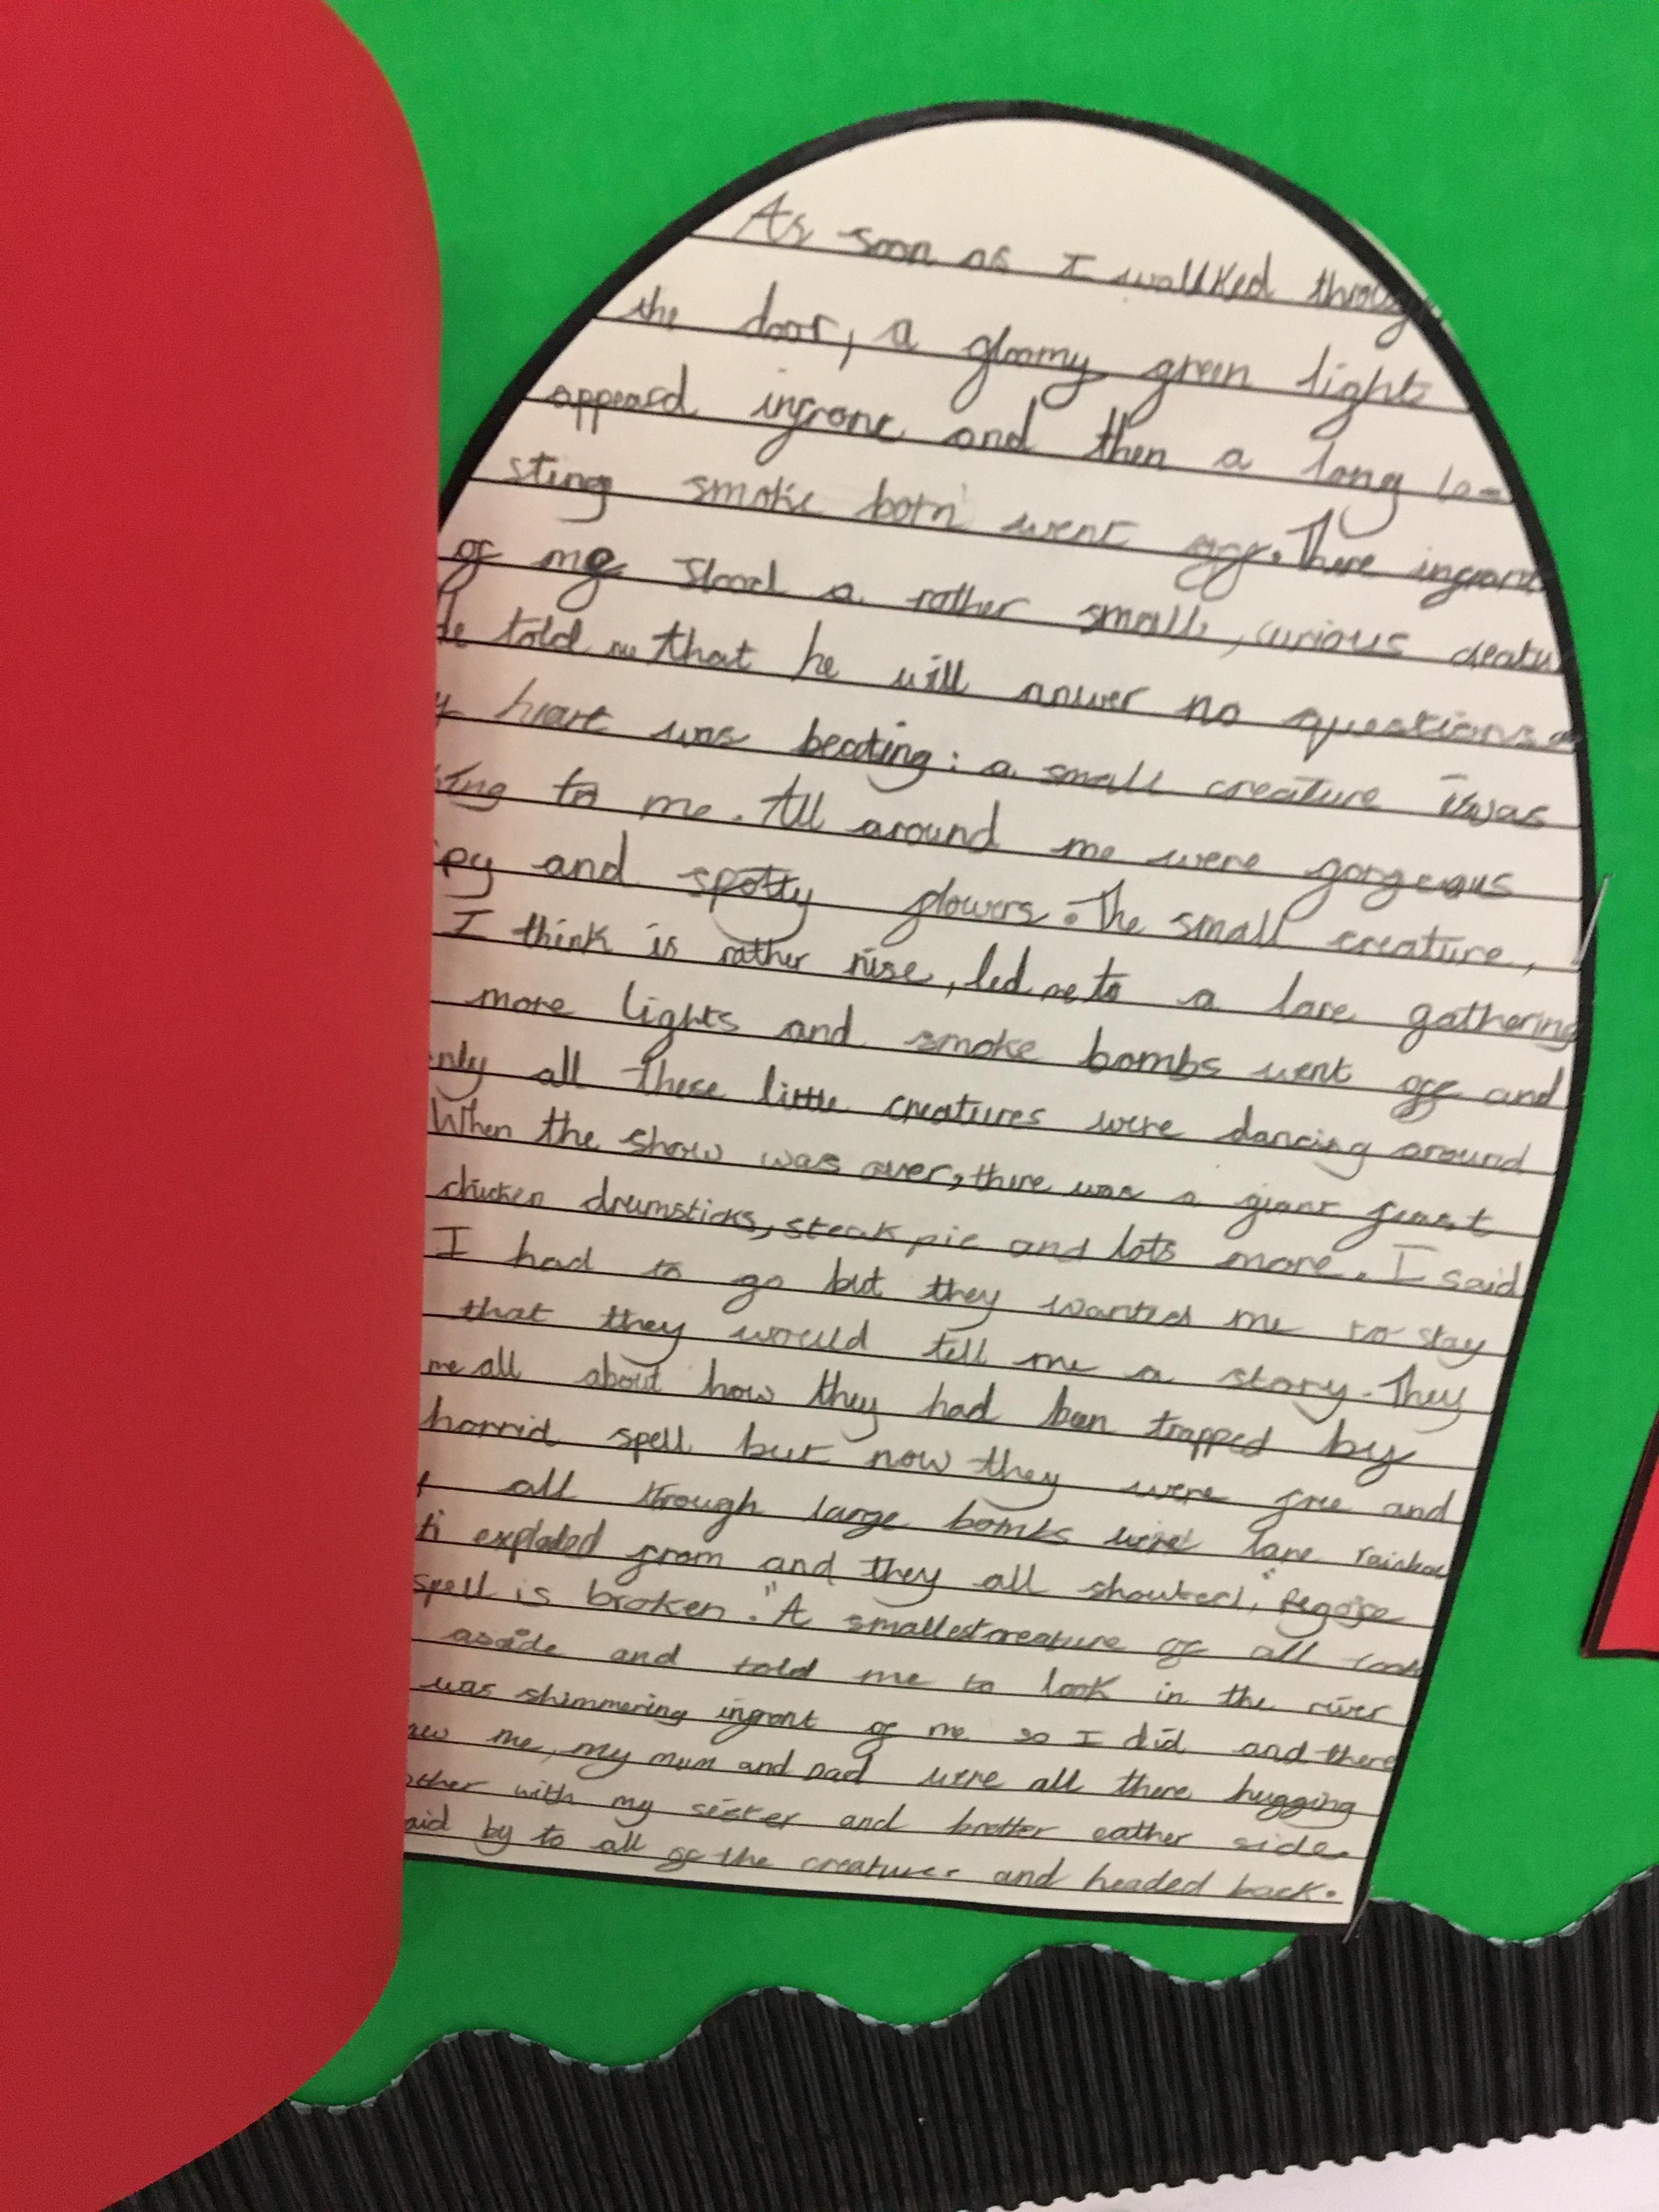 As soon as I wallked throug
the door, a gloomy green light
appeard infront and then a long la-
sting smoke bom went off. There infront
of me stood a rather small, curious creatu
He told me that he will anwer no questions
y heart was beating: a small creature was
ing to me. All around me were gorgeous
py and spotty flowers. The small creature,
I think is rather nise, led me to a lare gathering
more lights and smoke bombs went off and
nly all these little creatures were dancing around
When the show was over, there was a giant feast
chicken drumsticks, steak pie and lots more. I said
I had to go but they wanted me to stay
that they would tell me a story. They
me all about how they had been trapped by
horrid spell but now they were free and
t all through large bombs were lare rainbow
ti exploded from and they all shouted, "
spell is broken." A smallest creature of all took
aside and told me to look in the river
was shimmering infront of me so I did and there
aw me, my mum and dad were all there hugging
other with my sister and brotter eather side.
aid by to all of the creatures and headed back.